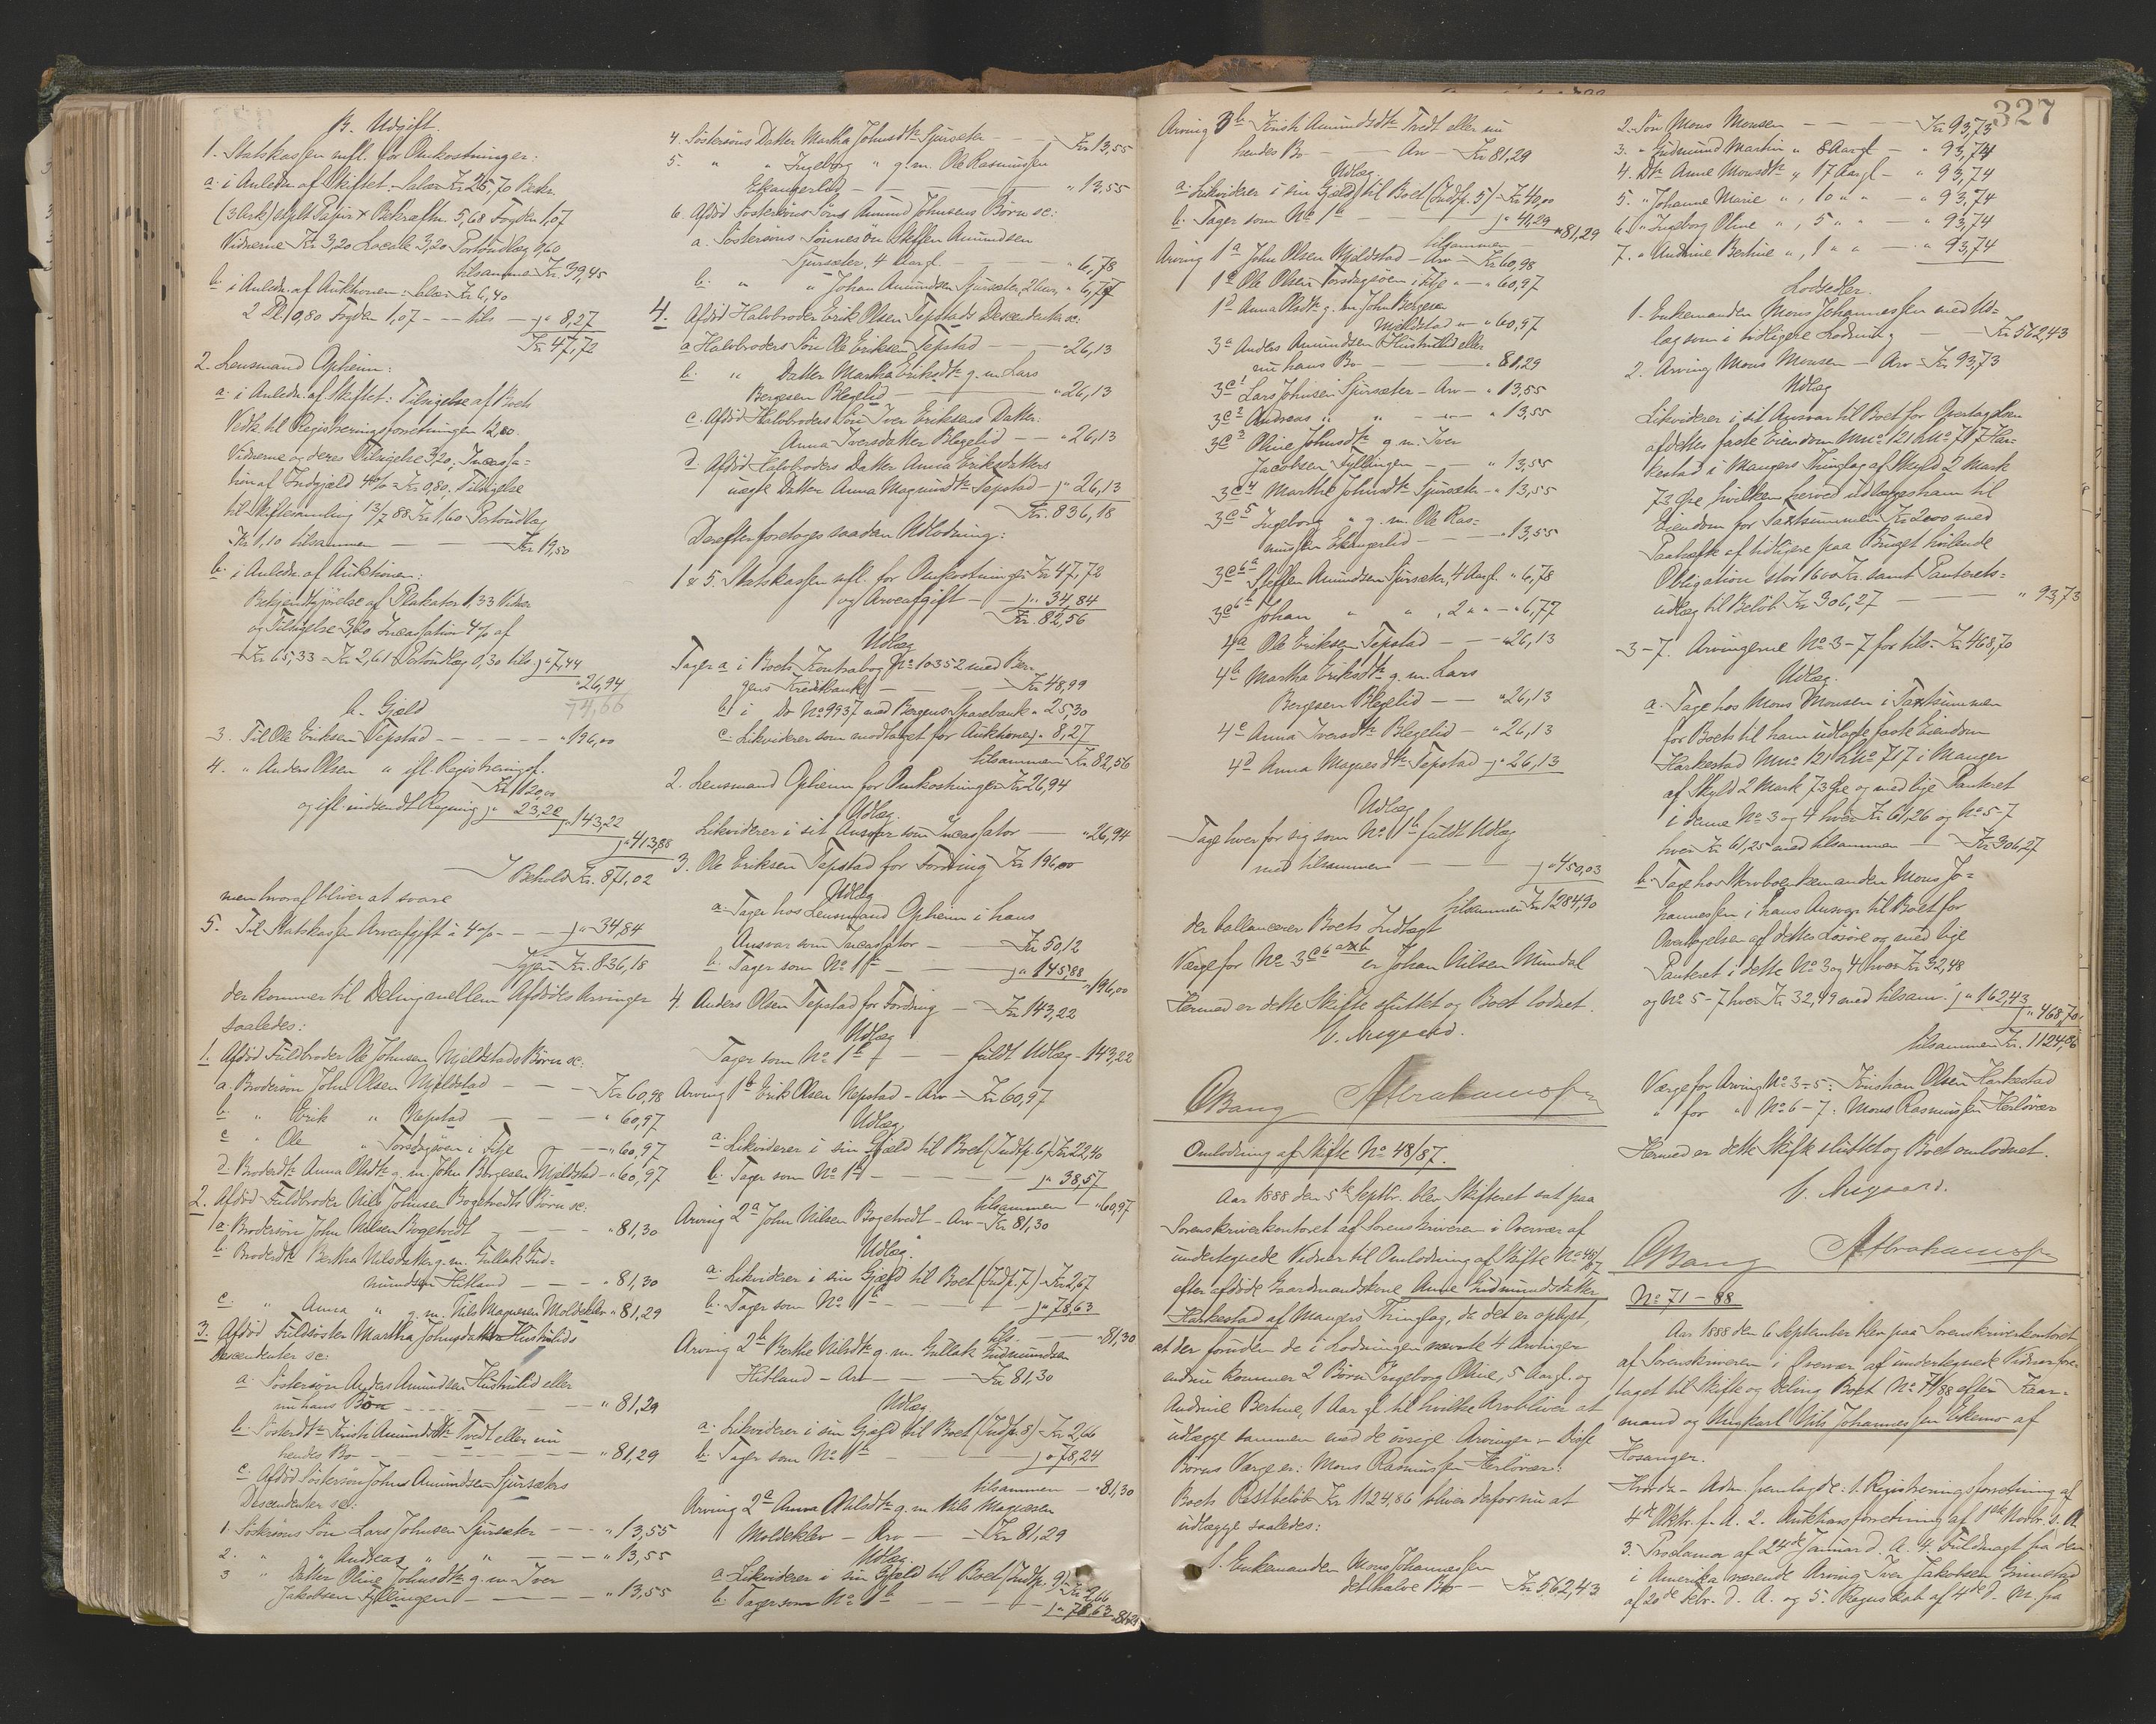 B. Udgift.
1. Statskassen mfl. for Omkostninger:
a. i Anledn. af Skiftet: Salær Kr 25,70 Bekr.
(3 Ark) stplt Papir & Bekræftn. 5,68 Fogden 1,07
Vidnerne Kr 3,20 Locale 3,20 Portoudlæg 0,60
tilsammen Kr. 39,45
b. i Anledn. af Auktionen: Salær Kr 6,40
2 Pl. 0,80 Fogden 1,07 - - - tils - " 8,27
Kr 47,72
2. Lensmand Opheim:
a. i Anledn. af Skiftet: Tilsigelse af Boets
Vedk. til Registreringsforretningen
Vidnerne og deres Tilsigelse 3,20, Incassa-
tion af Indgjæld 4% = Kr 0,80, Tilsigelse
til Skiftesamling 13/7 88 Kr 1,60 Portoudlæg
Kr 1,10 tilsammen - - Kr 19,50
b. i Anledn. af Auktionen:
Bekjendtgjørelse af Plakater 1,33 Vidner
og Tilsigelse 3,20 Incassation 4% af
Kr 65,33 = Kr 2,61 & Portoudlæg 0,30 tils. " 7,44
" 26,94
74,66
b. Gjæld
3. Til Ole Eriksen Tepstad - - - - " 196,00
4. " Anders Olsen " ifl. Registreringsf.
Kr 120,00
og ifl. indsendt Regning " 23,22 " 143,22
" 413,88
I Behold Kr. 871,02
men hvoraf bliver at svare
5. Til Statskassen Arveafgift à 4% - - " 34,84
Igjen Kr. 836,18
der kommer til Deling mellem Afdødes Arvinger
saaledes:
1. Afdød Fuldbroder Ole Johnsen Mjeldstads Børn sc:
a. Brodersøn John Olsen Mjeldstad - - - Kr 60,98
b. " Erik " Repstad - - " 60,97
c. " Ole " Torsdagsøen i Fitje - " 60,97
d. Broderdtr Anna Olsdtr g. m. John Børgesen Mjeldstad - " 60,97
2. Afdød Fuldbroder Nils Johnsen Bogetvedts Børn sc:
a. Brodersøn John Nilsen Bogetvedt - - " 81,30
b. Broderdtr Bertha Nilsdatter g. m. Gullak Gud-
mundsen Hitland - - - " 81,30
c. " Anna " g. m. Nils Magnesen Moldeklev " 81,29
3. Afdød Fuldsøster Martha Johnsdatter Hustrulids
Descendenter sc:
a. Søstersøn Anders Amundsen Hustrulid eller
nu hans Bo - - - " 81,29
b. Søsterdtr Kristi Amundsdtr Tvedt eller nu
hendes Bo - - - - " 81,29
c. Afdød Søstersøn John Amundsen Sjursæters
Descendenter sc:
1. Søstersøns Søn Lars Johnsen Sjursæter - - - " 13,55
2. " " Andreas " " - - - " 13,55
3 " Datter Oline Johnsdtr g. m. Iver
Jakobsen Fyllingen - - - - " 13,55
4. Søstersøns Datter Martha Johnsdtr Sjursæter - - - Kr 13,55
5. " " Ingeborg " g. m. Ole Rasmussen
Ekangerlid - - - " 13,55
6. Afdød Søstersøns Søns Amund Johnsens Børn sc:
a. Søstersøns Sønnesøn Steffen Amundsen
Sjursæter, 4 Aargl. - - - " 6,78
b. " " Johan Amundsen Sjursæter, 2 Aar, " 6,77
4. Afdød Halvbroder Erik Olsen Tepstads Descendenter sc:
a Halvbroders Søn Ole Eriksen Tepstad - - " 26,13
b. " Datter Martha Eriksdtr g. m. Lars
Børgesen Blegelid - - - " 26,13
c. Afdød Halvbroders Søn Iver Eriksens Datter
Anna Iversdatter Blegelid - - " 26,13
d. Afdød Halvbroders Datter Anna Eriksdatters
uægte Datter Anna Magnusdtr Tepstad - " 26,13
Kr. 836,18
Derefter foretoges saadan Udlodning:
1 & 5. Statskassen mfl. for Omkostninger Kr 47,72
og Arveafgift - - " 34,84
Kr. 82,56
Udlæg
Tager a i Boets Kontrabog No 10352 med Ber-
gens Kreditbank - - Kr 48,99
b. i Do No 9937 med Bergens Sparebank " 25,30
c. Likviderer som modtaget for Auktionen " 8,27
tilsammen Kr 82,56
2. Lensmand Opheim for Omkostninger Kr 26,94
Udlæg.
Likviderer i sit Ansvar som Incassator - - " 26,94
3. Ole Eriksen Tepstad for Fordring Kr 196,00
Udlæg
a. Tager hos Lensmand Opheim i hans
Ansvar som Incassator - - Kr 50,12
b. Tager som No 1b - - " 145,88 " 196,00
4. Anders Olsen Tepstad for Fordring - Kr 143,22
Udlæg
Tager som No 1b - - fuldt Udlæg - 143,22
Arving 1b Erik Olsen Repstad - Arv - Kr 60,97
Udlæg
a. Likviderer i sin Gjæld til Boet (Indtp. 6) Kr 22,40
b. Tager som No 1b - - - " 38,57
tilsammen - " 60,97
Arving 2a John Nilsen Bogetvedt - Arv - Kr 81,30
Udlæg.
a. Likviderer i sin Gjæld til Boet (Indtp. 7) - Kr 2,67
b. Tager som No 1b - - - " 78,63
tils. - - " 81,30
Arving 2b Berthe Nilsdtr g. m. Gullak Gudmundsen
Hitland - Arv - - Kr 81,30
Udlæg.
a. Likviderer i sin Gjæld til Boet (Indtp. 8) - Kr 2,66
b. Tager som No 1b - - - " 78,24
tilsammen - " 81,30
Arving 2c Anna Nilsdtr g. m. Nils Magnesen
Moldeklev - Arv - - Kr 81,29
Udlæg.
a. Likviderer i sin Gjæld til Boet (Indtp. 9) - Kr 2,66
b. Tager som No 1b - - - " 78,63 " 81,29
Arving 3b Kristi Amundsdtr Tvedt eller nu
hendes Bo - - Arv - Kr 81,29
Udlæg.
a. Likviderer i sin Gjæld til Boet (Indtp. 5) - Kr 40,00
b. Tager som No 1b - - - " 41,29
tilsammen - " 81,29
Arving 1a John Olsen Mjeldstad - Arv - Kr 60,98
1c Ole Olsen Torsdagsøen i Fitje " - " 60,97
1d Anna Olsdtr g. m. John Børgesen
Mjeldstad " - " 60,97
3a Anders Amundsen Hustrulid eller
nu hans Bo - - - " 81,29
3c1 Lars Johnsen Sjursæter - Arv - " 13,55
3c2 Andreas " " - " - " 13,55
3c3 Oline Johnsdtr g. m. Iver
Jacobsen Fyllingen - - " 13,55
3c4 Marthe Johnsdtr Sjursæter - " 13,55
3c5 Ingeborg " g. m. Ole Ras-
mussen Ekangerlid - - - " 13,55
3c6a Steffen Amundsen Sjursæter, 4 Aargl. " 6,78
3c6b Johan " " , 2 " " - " 6,77
4a Ole Eriksen Tepstad - - " 26,13
4b Martha Eriksdtr g. m. Lars
Børgesen Blegelid - - " 26,13
4c Anna Iversdtr Blegelid - " 26,13
4d Anna Magnesdtr Tepstad " 26,13
Udlæg
Tage hver for sig som No 1b fuldt Udlæg
med tilsammen - - - " 450,03
tilsammen Kr 1284,90
der ballancerer Boets Indtægt
Værge for No 3c6 a & b er Johan Nilsen Mundal
Hermed er dette Skifte sluttet og Boet lodnet.
V. Augaard.
OBang AAbrahamsen
Omlodning af Skifte No 48/87.
Aar 1888 den 5te Septbr. blev Skifteret sat paa
Sorenskriverkontoret af Sorenskriveren i Overvær af
undertegnede Vidner til Omlodning af Skifte No 48/87
efter afdøde Gaardmandskone Anne Gudmundsdatter
Harkestad af Mangers Thinglag, da det er oplyst,
at der foruden de i Lodningen nævnte 4 Arvinger
endnu kommer 2 Børn Ingeborg Oline, 5 Aargl. og
Andrine Bertine, 1 Aar gl. til hvilke Arv bliver at
udlægge sammen med de øvrige Arvinger - Disse
Børns Værge er: Mons Rasmussen Herløvær.
Boets Restbeløb Kr 1124,86 bliver derfor nu at
udlægge saaledes:
1. Enkemanden Mons Johannessen
det halve Bo - Kr 562,43
327
2. Søn Mons Monsen - - - - Kr 93,73
3. " Gudmund Martin " 8 Aargl - " 93,74
4. Dtr Anne Monsdtr " 17 Aargl - " 93,74
5. " Johanne Marie " , 10 " " - " 93,74
6. " Ingeborg Oline " , 5 " " - " 93,74
7. " Andrine Bertine " , 1 " " - " 93,74
Lodsedler.
1. Enkemanden Mons Johannessen med Ud-
læg som i tidligere Lodning - - Kr 562,43
2. Arving Mons Monsen - Arv - Kr 93,73
Udlæg
Likviderer i sit Ansvar til Boet for Overtagelsen
af dettes faste Eiendom Mno 121 LNo 717 Har-
kestad i Mangers Thinglag af Skyld 2 Mark
73 Øre hvilken herved udlægges ham til
Eiendom for Taxtsummen Kr 2000 med
Paahefte af tidligere paa Bruget heftende
Obligation stor 1600 Kr. samt Panterets-
udlæg til Beløb Kr 306,27 - - - " 93,73
3-7. Arvingerne No 3-7 for tils. Kr 468,70
Udlæg.
a. Tage hos Mons Monsen i Taxtsummen
for Boets til ham udlagte faste Eiendom
Harkestad Mno 121 LNo 717 i Manger
af Skyld 2 Mark 73 Øre og med lige Panteret
i denne No 3 og 4 hver Kr 61,26 og No 5-7
hver Kr 61,25 med tilsammen - Kr 306,27
b. Tage hos Skrvboenkemanden Mons Jo-
hannessen i hans Ansvar til Boet for
Overtagelsen af dettes Løsøre og med lige
Panteret i dette No 3 og 4 hver Kr 32,48
og No 5-7 hver Kr 32,49 med tilsam. " 162,43
" 468,70
tilsammen Kr. 1124,86
Værge for Arving No 3-5: Kristian Olsen Harkestad
" for " No 6-7: Mons Rasmussen Herløvær
Hermed er dette Skifte sluttet og Boet omlodnet.
V. Augaard.
OBang AAbrahamsen
No 71-88
Aar 1888 den 6 September blev paa Sorenskriverkontoret
af Sorenskriveren i Overvær af undertegnede Vidner fore-
taget til Skifte og Deling Boet No 71/88 efter Kaar-
mand og Ungkarl Nils Johannessen Eknes af
Hosanger.
Hordn - Adm. fremlagde: 1. Registreringsforretning af
4de Oktbr. f. A. 2. Auktionsforretning af 1ste Novbr. s. A.
3. Proclama af 24de Januar d. A. 4. Fuldmagt fra den
i Amerika værende Arving Iver Jakobsen Grimstad
af 20de Febr. d. A. og 5. Regnskab af 4de d. M. fra